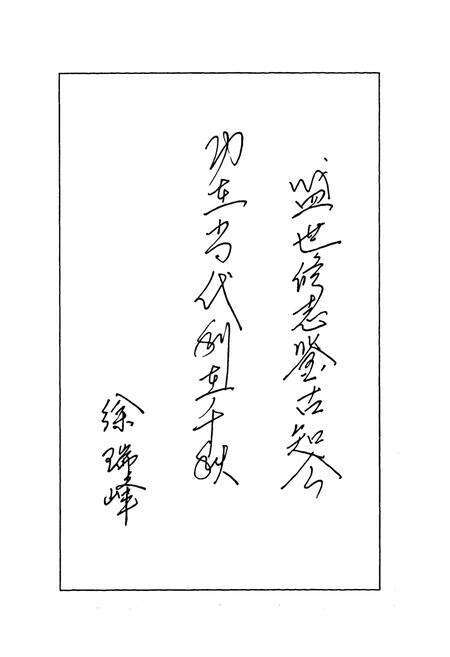 盛世修志鉴古知今
功在当代利在千秋
徐瑞峰